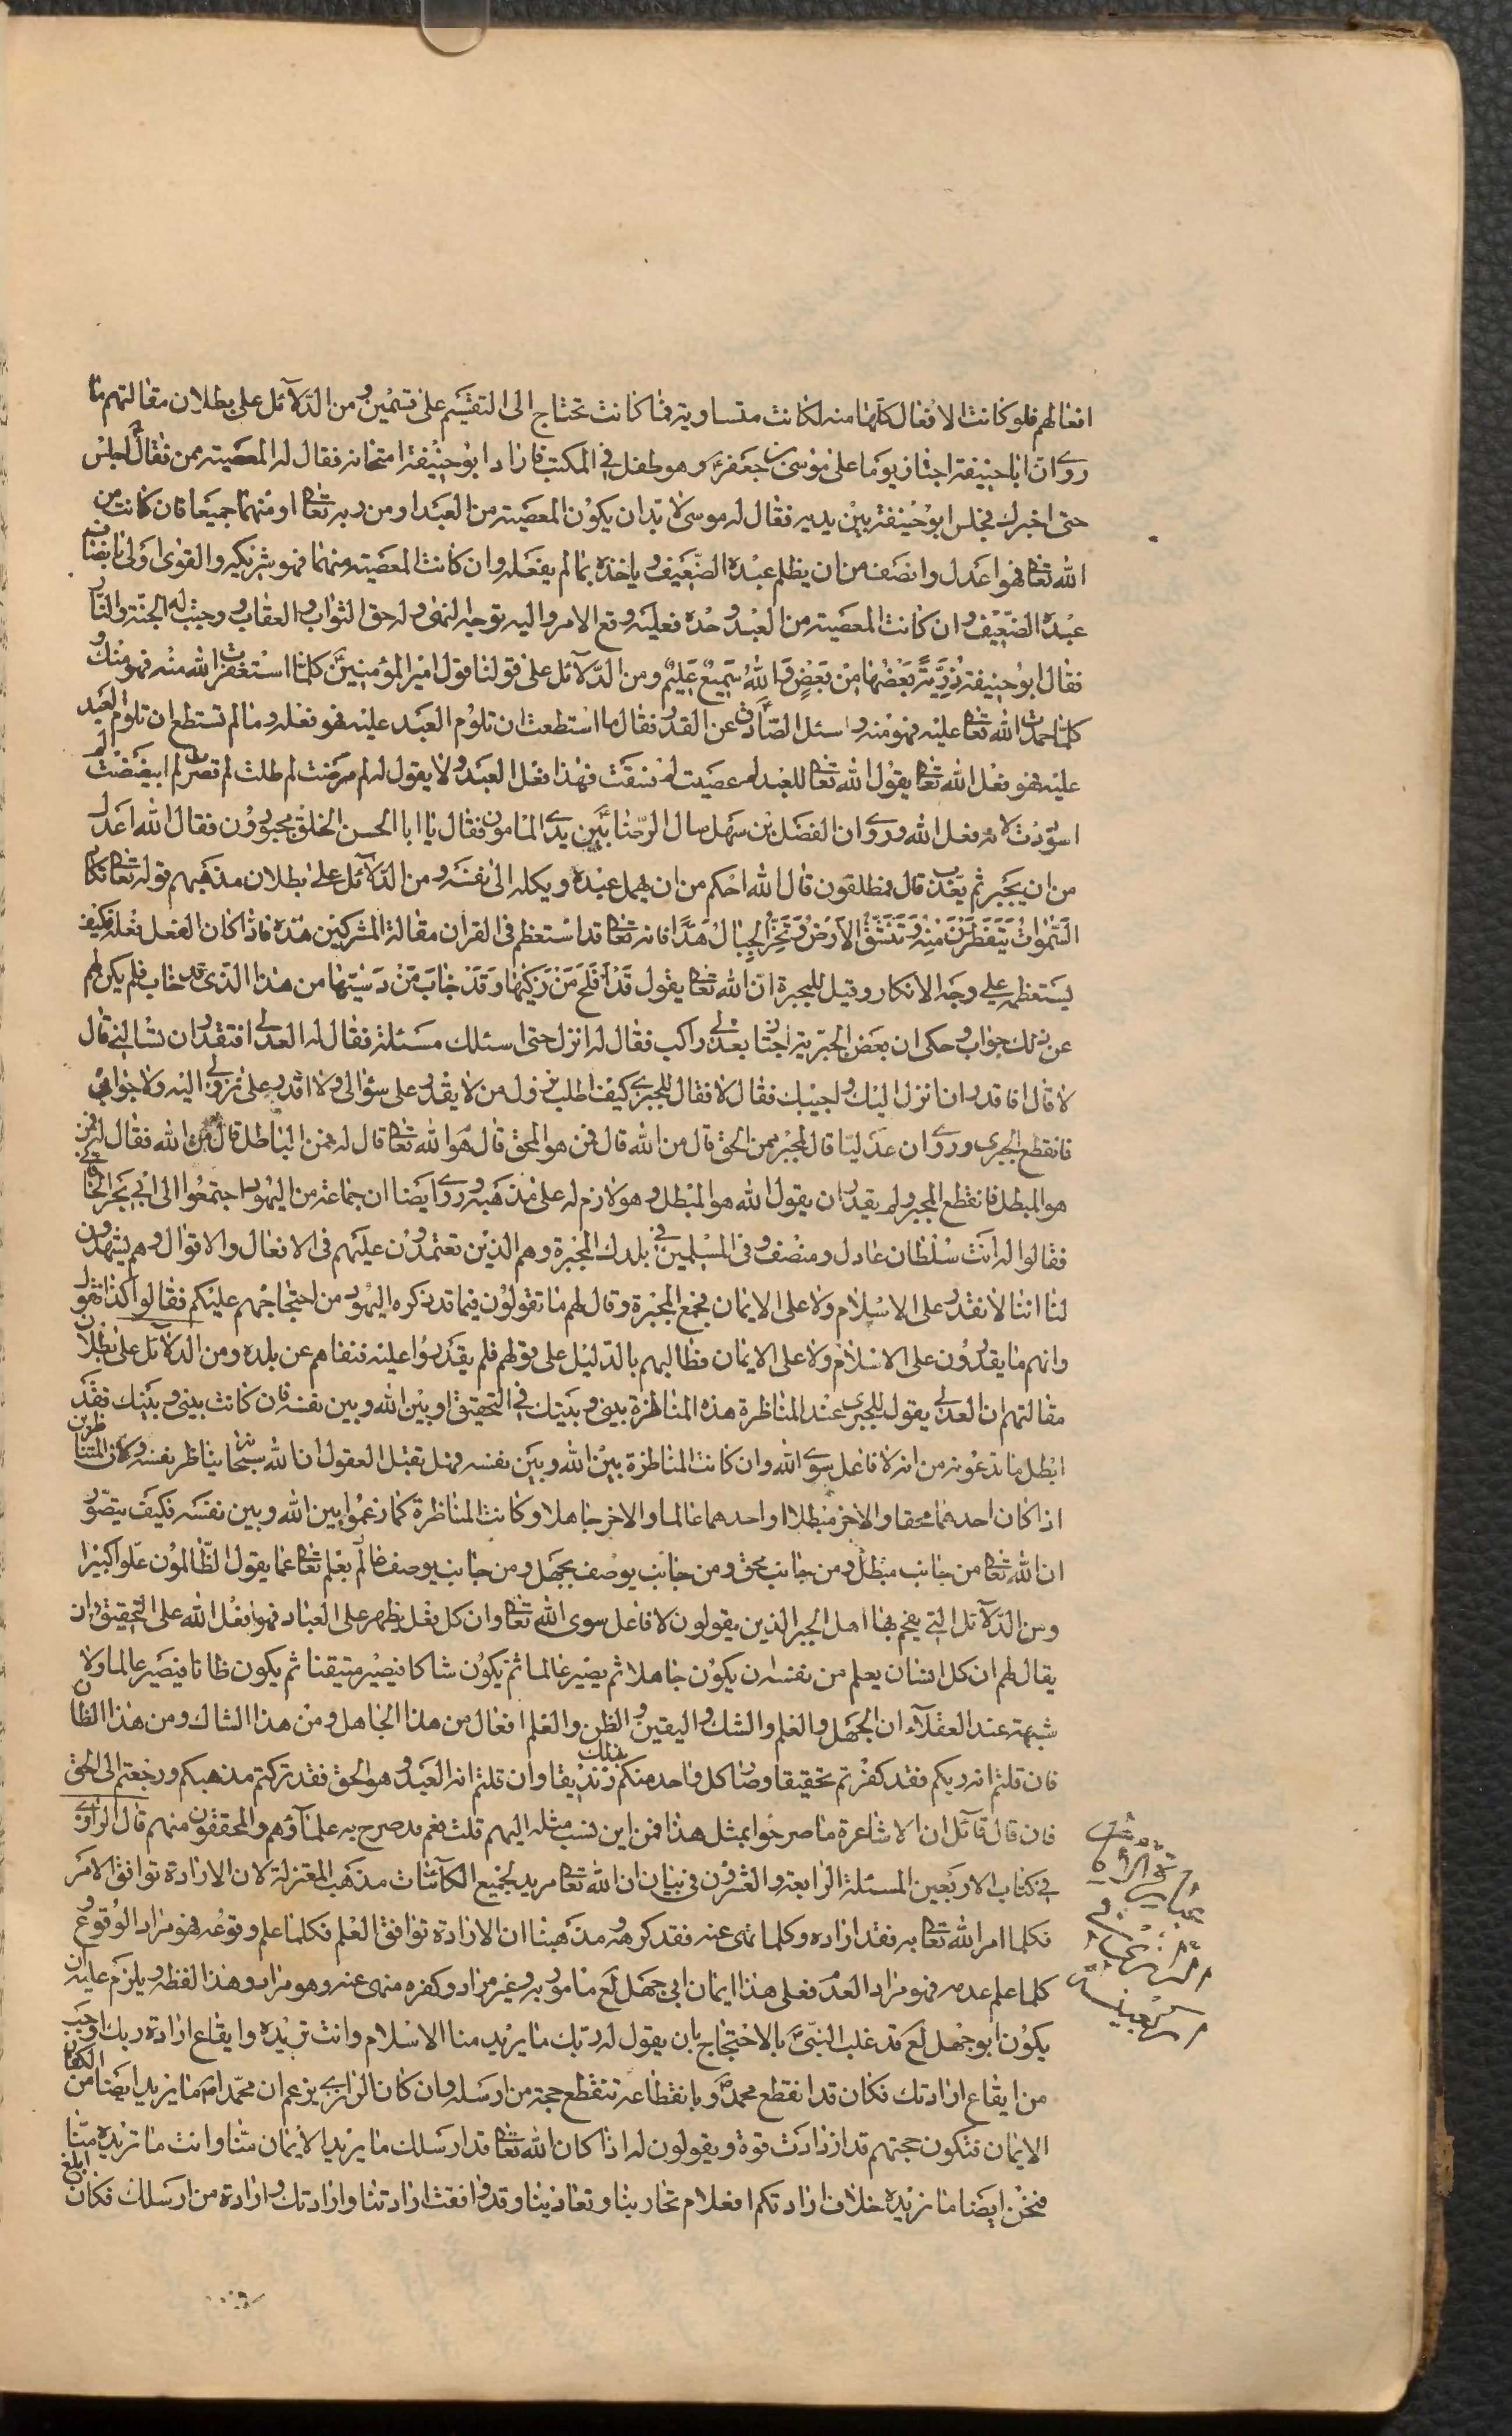 افعالهم فلو كانت الافعال كلها منه لكانت متساوية فما كانت تحتاج الى التقسيم على قسمين ومن الدلائل على بطلان مقالتهم ما
روى ان ابا حنيفة اجتاز يوما على موسى بن جعفر ع وهو طفل في المكتب فاراد ابو حنيفة امتحانه فقال له المعصية ممن فقال اجلس
حتى اخبرك فجلس ابو حنيفة بين يديه فقال له موسى لا بد ان يكون المعصية من العبد او من ربه تعالى او منهما جميعا فان كانت من
الله تعالى فهو اعدل وانصف من ان يظلم عبده الضعيف وياخذه بما لم يفعله وان كانت المعصية منهما فهو شريكه والقوى اولى بانصاف
عبده الضعيف وان كانت المعصية من العبد وحده فعليه وقع الامر واليه توجه النهى وله حق الثواب والعقاب ووجبت له الجنة والنار
فقال ابو حنيفة ذُرِّيَّةً بَعْضُهَا مِنْ بَعْضٍ وَاللهُ سَمِيعٌ عَلِيمٌ ومن الدلائل على قولنا قول امير المؤمنين ع كلما استغفرت الله منه فهو منك و
كلما حمدت الله تعالى عليه فهو منه و سئل الصادق ع عن القدر فقال ما استطعت ان تلوم العبد عليه فهو فعله وما لم تستطع ان تلوم العبد
عليه فهو فعل الله تعالى يقول الله تعالى للعبد لم عصيت لم فسقت فهذا فعل العبد ولا يقول له لم مرضت لم طلت لم قصرت لم ابيضضت لم
اسوددت لانه فعل الله وروى ان الفضل بن سهل سال الرضا ع بين يدى المامون فقال يا ابا الحسن الخلق مجبورون فقال الله اعدل
من ان يجبر ثم يعذب قال فمطلقون قال الله احكم من ان يهمل عبده ويكله الى نفسه ومن الدلائل على بطلان مذهبهم قوله تعالى تكاد
السَّمٰوَاتُ يَتَفَطَّرْنَ مِنْهُ وَتَنْشَقُّ الْاَرْضُ وَتَخِرُّ الْجِبَالُ هَدًّا فانه تعالى قد استعظم في القران مقالة المشركين هذه فاذا كان الفعل فعله فكيف
يستعظمه على وجه الانكار وقيل للمجبرة ان الله تعالى يقول قَدْ اَفْلَحَ مَنْ زَكّٰيهَا وَقَدْ خَابَ مَنْ دَسّٰيهَا من هذا الذى قد خاب فلم يكن لهم
عن ذلك جواب وحكى ان بعض الجبرية اجتاز بعدلى راكب فقال له انزل حتى اسئلك مسئلة فقال له العدلى افتقدر ان تسالنى قال
لا قال افاقدر ان انزل اليك واجيبك فقال لا فقال للجبرى كيف اطلب نزول من لا يقدر على سؤالى ولا اقدر على نزولى اليه ولا جوابى
فانقطع الجبرى وروى ان عدليا قال لمجبر ممن الحق قال من الله قال فمن هو المحق قال هو الله تعالى قال له ممن الباطل قال من الله فقال له فمن
هو المبطل فانقطع المجبر ولم يقدر ان يقول الله هو المبطل وهو لازم له على مذهبه وروى ايضا ان جماعة من اليهود اجتمعوا الى ابى بحر الخاقانى
فقالوا له انت سلطان عادل ومنصف وفى المسلمين في بلدك المجبرة وهم الذين تعتمدون عليهم في الافعال والاقوال وهم يشهدون
لنا اننا لا نقدر على الاسلام ولا على الايمان فجمع المجبرة وقال لهم ما تقولون فيما قد يذكره اليهود من احتجاجهم عليكم فقالوا كذا نقول
وانهم ما يقدرون على الاسلام ولا على الايمان فطالبهم بالدليل على قولهم فلم يقدروا عليه فنفاهم عن بلده ومن الدلائل على بطلان
مقالتهم ان العدلى يقول للجبرى عند المناظرة هذه المناظرة بينى وبينك في التحقيق او بين الله وبين نفسه فان كانت بينى وبينك فقد
ابطل ما تدعونه من انه لا فاعل سوى الله وان كانت المناظرة بين الله وبين نفسه فهل تقبل العقول ان الله سبحانه يناظر نفسه وكان المتناظرين
اذا كان احدهما محقا والاخر مبطلا او احدهما عالما والاخر جاهلا وكانت المناظرة كما زعموا بين الله وبين نفسه فكيف يتصور
ان الله تعالى من جانب مبطل ومن جانب محق ومن جانب يوصف بجهل ومن جانب يوصف عالم بعلم تعالى عما يقول الظالمون علوا كبيرا
ومن الدلائل التى يفحم بها اهل الجبر الذين يقولون لا فاعل سوى الله تعالى وان كل فعل يظهر على العباد فهو فعل الله على التحقيق ان
يقال لهم ان كل انسان يعلم من نفسه ان يكون جاهلا ثم يصير عالما ثم يكون شاكا فيصير متيقنا ثم يكون ظانا فيصير عالما ولا
شبهة عند العقلاء ان الجهل والعلم والشك واليقين والظن والعلم افعال من هذا الجاهل ومن هذا الشاك ومن هذا الظان
فان قلتم انه ربكم فقد كفرتم تحقيقا وصار كل واحد منكم بذلك زنديقا وان قلتم انه العبد وهو الحق فقد تركتم مذهبكم ورجعتم الى الحق
فان قال قائل ان الاشاعرة ما صرحوا بمثل هذا فمن اين نسب مثله اليهم قلت نعم قد صرح به علماؤهم والمحققون منهم قال الرازى
في كتاب الاربعين المسئلة الرابعة والعشرون في بيان ان الله تعالى مريد لجميع الكائنات مذهب المعتزلة لان الارادة توافق الامر
فكلما امر الله تعالى به فقد اراده وكلما نهى عنه فقد كرهه ومذهبنا ان الارادة توافق العلم فكلما علم وقوعه فهو مراد الوقوع و
كلما علم عدمه فهو مراد العدم فعلى هذا ايمان ابى جهل لع مامور به وغير مراد وكفره منهى عنه وهو مراد وهذا لفظه ويلزم عليه ان
يكون ابو جهل لع قد غلب النبى ص بالاحتجاج بان يقول له ربك ما يريد منا الاسلام وانت تريده وايقاع ارادة ربك اوجب
من ايقاع ارادتك فكان قد انقطع محمد ص وبانقطاعه تنقطع حجة من ارسله وان كان الرازى يزعم ان محمدا ص ما يريد ايضا من الكفار
الايمان فتكون حجتهم قد ازدادت قوة ويقولون له اذا كان الله تعالى قد ارسلك ما يريد الايمان منا وانت ما تريده منا
فنحن ايضا ما نريده خلاف ارادتكم افعلام تحاربنا وتعادينا وقد وافقت ارادتنا وارادتك وارادة من ارسلك فكان ابلغ